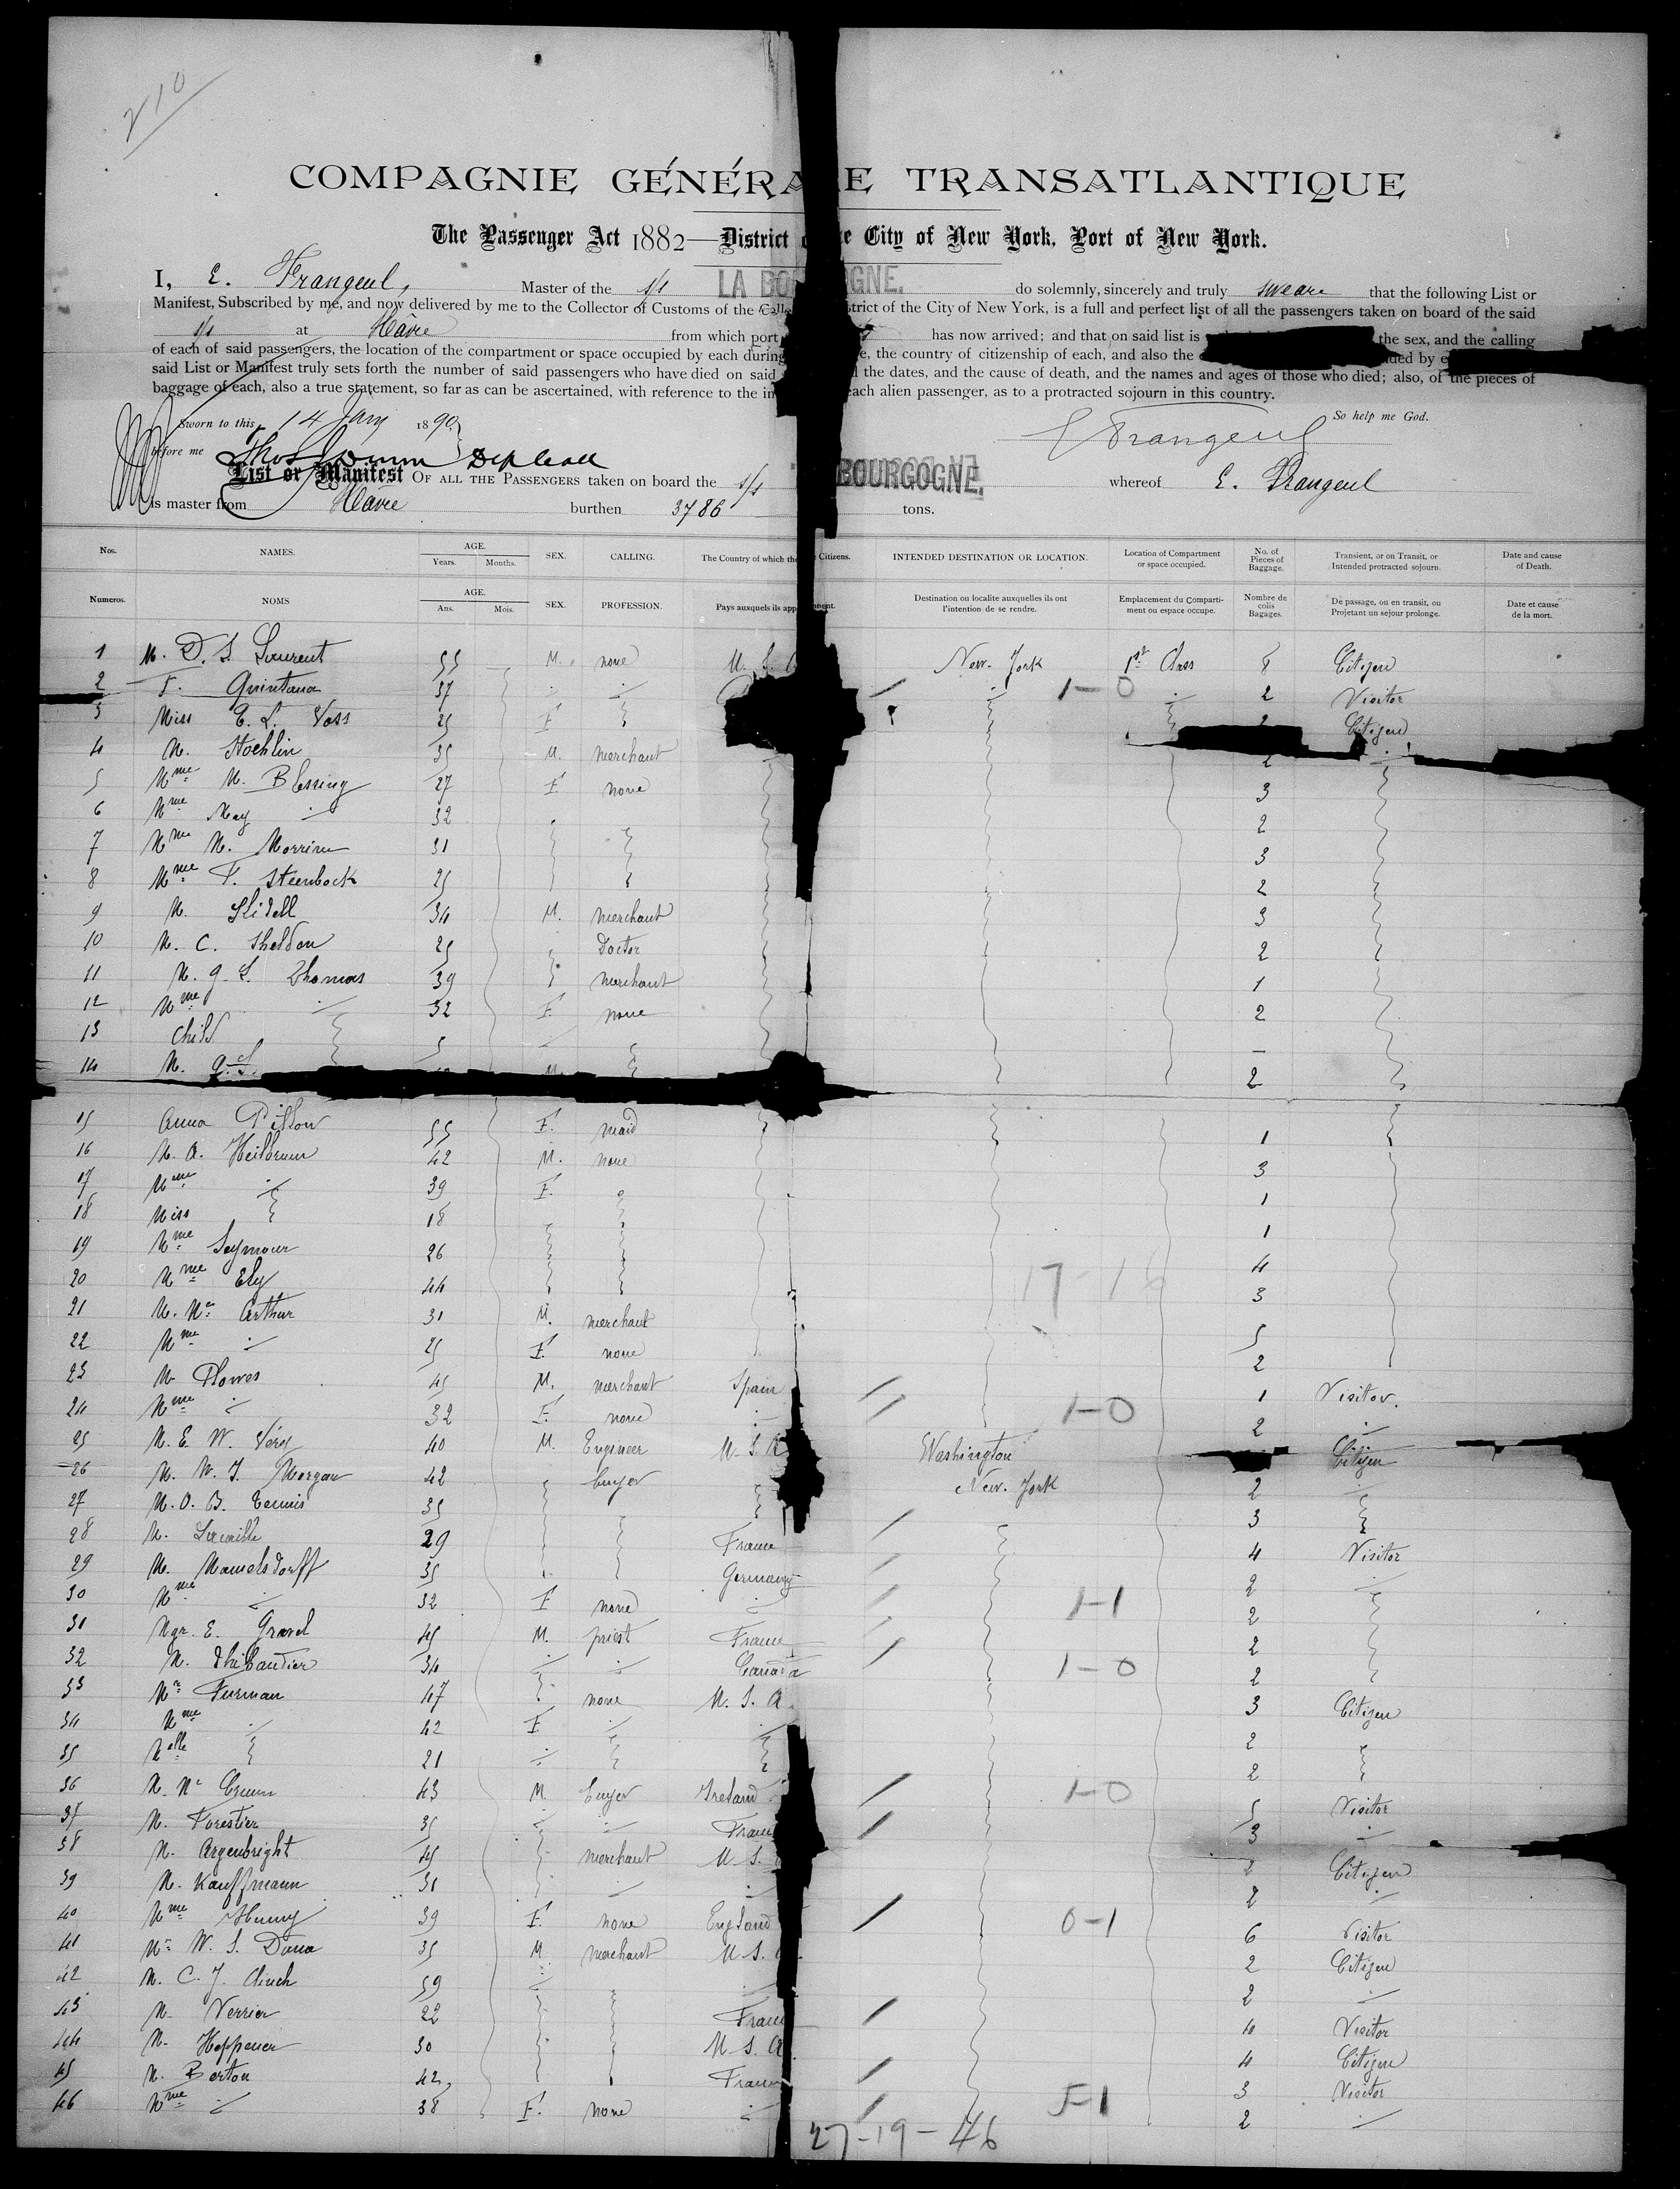 210
COMPAGNIE GÉNÉRA E TRANSATLANTIQUE
The Passenger Act 1882—District o e City of New York, Port of New York.
I, E. Frangeul, Master of the s/s LA BO GNE. do solemnly, sincerely and truly sweare that the following List or
Manifest, Subscribed by me, and now delivered by me to the Collector of Customs of the Colle strict of the City of New York, is a full and perfect list of all the passengers taken on board of the said
s/s at Hâvre from which port has now arrived; and that on said list is the sex, and the calling
of each of said passengers, the location of the compartment or space occupied by each during e, the country of citizenship of each, and also the ded by e
said List or Manifest truly sets forth the number of said passengers who have died on said the dates, and the cause of death, and the names and ages of those who died; also, of the pieces of
baggage of each, also a true statement, so far as can be ascertained, with reference to the in each alien passenger, as to a protracted sojourn in this country.
Sworn to this 14 Jany 1890 So help me God.
before me Thos Dunn Dep Coll E Frangeul
List or Manifest OF ALL THE PASSENGERS taken on board the s/s BOURGOGNE. whereof E. Frangeul
is master from Hâvre burthen 3786 tons.
Nos. NAMES. AGE. Years. Months. SEX. CALLING. The Country of which the Citizens. INTENDED DESTINATION OR LOCATION. Location of Compartment or space occupied. No. of Pieces of Baggage. Transient, or on Transit, or Intended protracted sojourn. Date and cause of Death.
Numeros. NOMS AGE. Ans. Mois. SEX. PROFESSION. Pays auxquels ils app nent. Destination ou localite auxquelles ils ont l'intention de se rendre. Emplacement du Comparti-ment ou espace occupe. Nombre de colis Bagages. De passage, ou en transit, ou Projetant un sejour prolonge. Date et cause de la mort.
1 M. D. S. Laurent 55 M. none U. S. New-York 1st Class Citizen
2 F. Quintana 37 1-0 2 Visitor
3 Miss E. L. Voss 25 F. Citizen
4 M. Stoehlin 35 M. merchant 2
5 Mme M. Blessing 27 F. none 3
6 Mme May 32 2
7 Mme M. 31 3
8 Mme F. Steenbock 25 2
9 M. Slidell 34 M. merchant 3
10 M. C. Sheldon 25 Doctor 2
11 M. G. S. Thomas 39 merchant 1
12 Mme 32 F. none 2
13 Child 5 —
14 M. M. 2
15 Anna 55 F. maid 1
16 M. A. Heilbrunn 42 M. none 3
17 Mme 39 F. 1
18 Miss 18 1
19 Mme Seymour 26 4
20 Mme Ely 44 17-16 3
21 M. Mc Arthur 31 M. merchant 5
22 Mme 25 F. none 2
23 M. Plowes 45 M. merchant Spain 1 Visitor.
24 Mme 32 F. none 1-0 2
25 M. E. W. Véry 40 M. Engineer U. S. A Washington Citizen
26 M. W. J. Morgan 42 buyer New-York 2
27 M. O. B. Tennis 35 3
28 M. Lacaille 29 France 4 Visitor
29 M. Mamelsdorff 35 Germany 2
30 Mme 32 F. none 1-1 2
31 Mgr. E. Gravel 45 M. priest France 2
32 M. Thibaudier 34 Canada 1-0 2
33 Mr Furman 47 none U. S. A. 3 Citizen
34 Mme 42 F. 2
35 Melle 21 2
36 M. Mc 43 M. buyer Ireland 1-0 5 Visitor
37 M. Forestier 35 Franc 3
38 M. Argenbright 45 merchant U. S. 2 Citizen
39 M. Kauffmann 31 2
40 Mme 39 F. none England 0-1 6 Visitor
41 Mr W. S. Dana 35 M merchant U. S. 2 Citizen
42 M. C. J. Clinch 59 2
43 M. Verrier 22 Franc 4 Visitor
44 M. Heppener 30 U. S. A 4 Citizen
45 M. Berton 42 Franc 3 Visitor
46 Mme 38 F. none 5-1 2
27-19-46